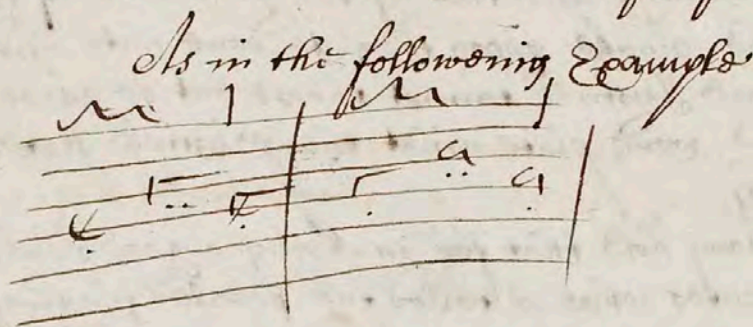 As in the followeing Example
e r e r a a